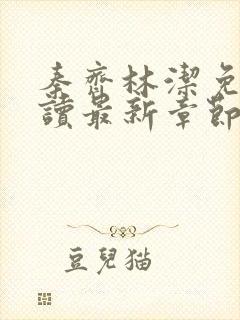 秦齊林潔免
讀最新章節
豆兒猫